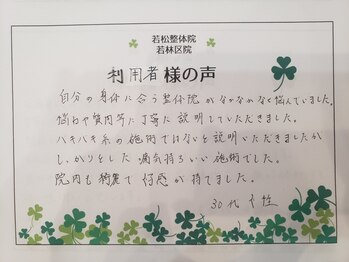 若松整体院
若林区院
利用者 様の声
自分の身体に合う整体院がなかなかなく悩んでいました。
悩みや質問等に丁寧に説明していただきました。
バキバキ系の施術ではないと説明いただきましたが
しっかりとした満気持ちいい施術でした。
院内も綺麗で好感が持てました。
30代 女性